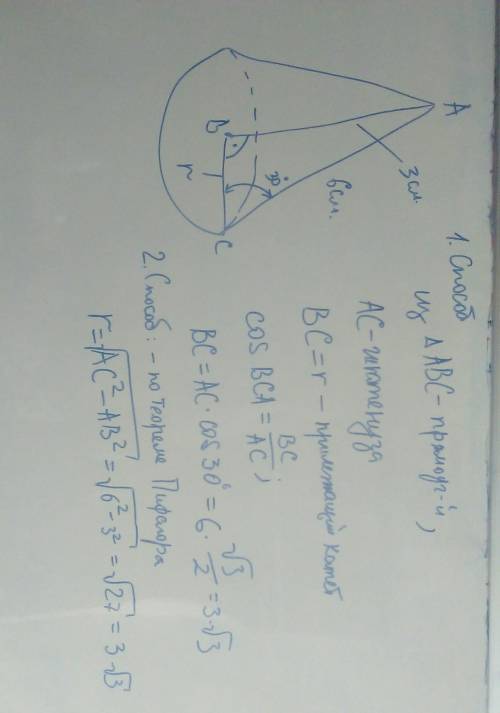 A
3 см.
6 см.
30°
B
r
C
1. Способ
из △ABC - прямоуг-й,
AC - гипотенуза
BC = r - прилежащий катет
cos BCA = BC/AC;
BC = AC · cos 30° = 6 · √3/2 = 3√3
2. Способ: - по теореме Пифагора
r = √AC² - AB² = √6² - 3² = √27 = 3√3